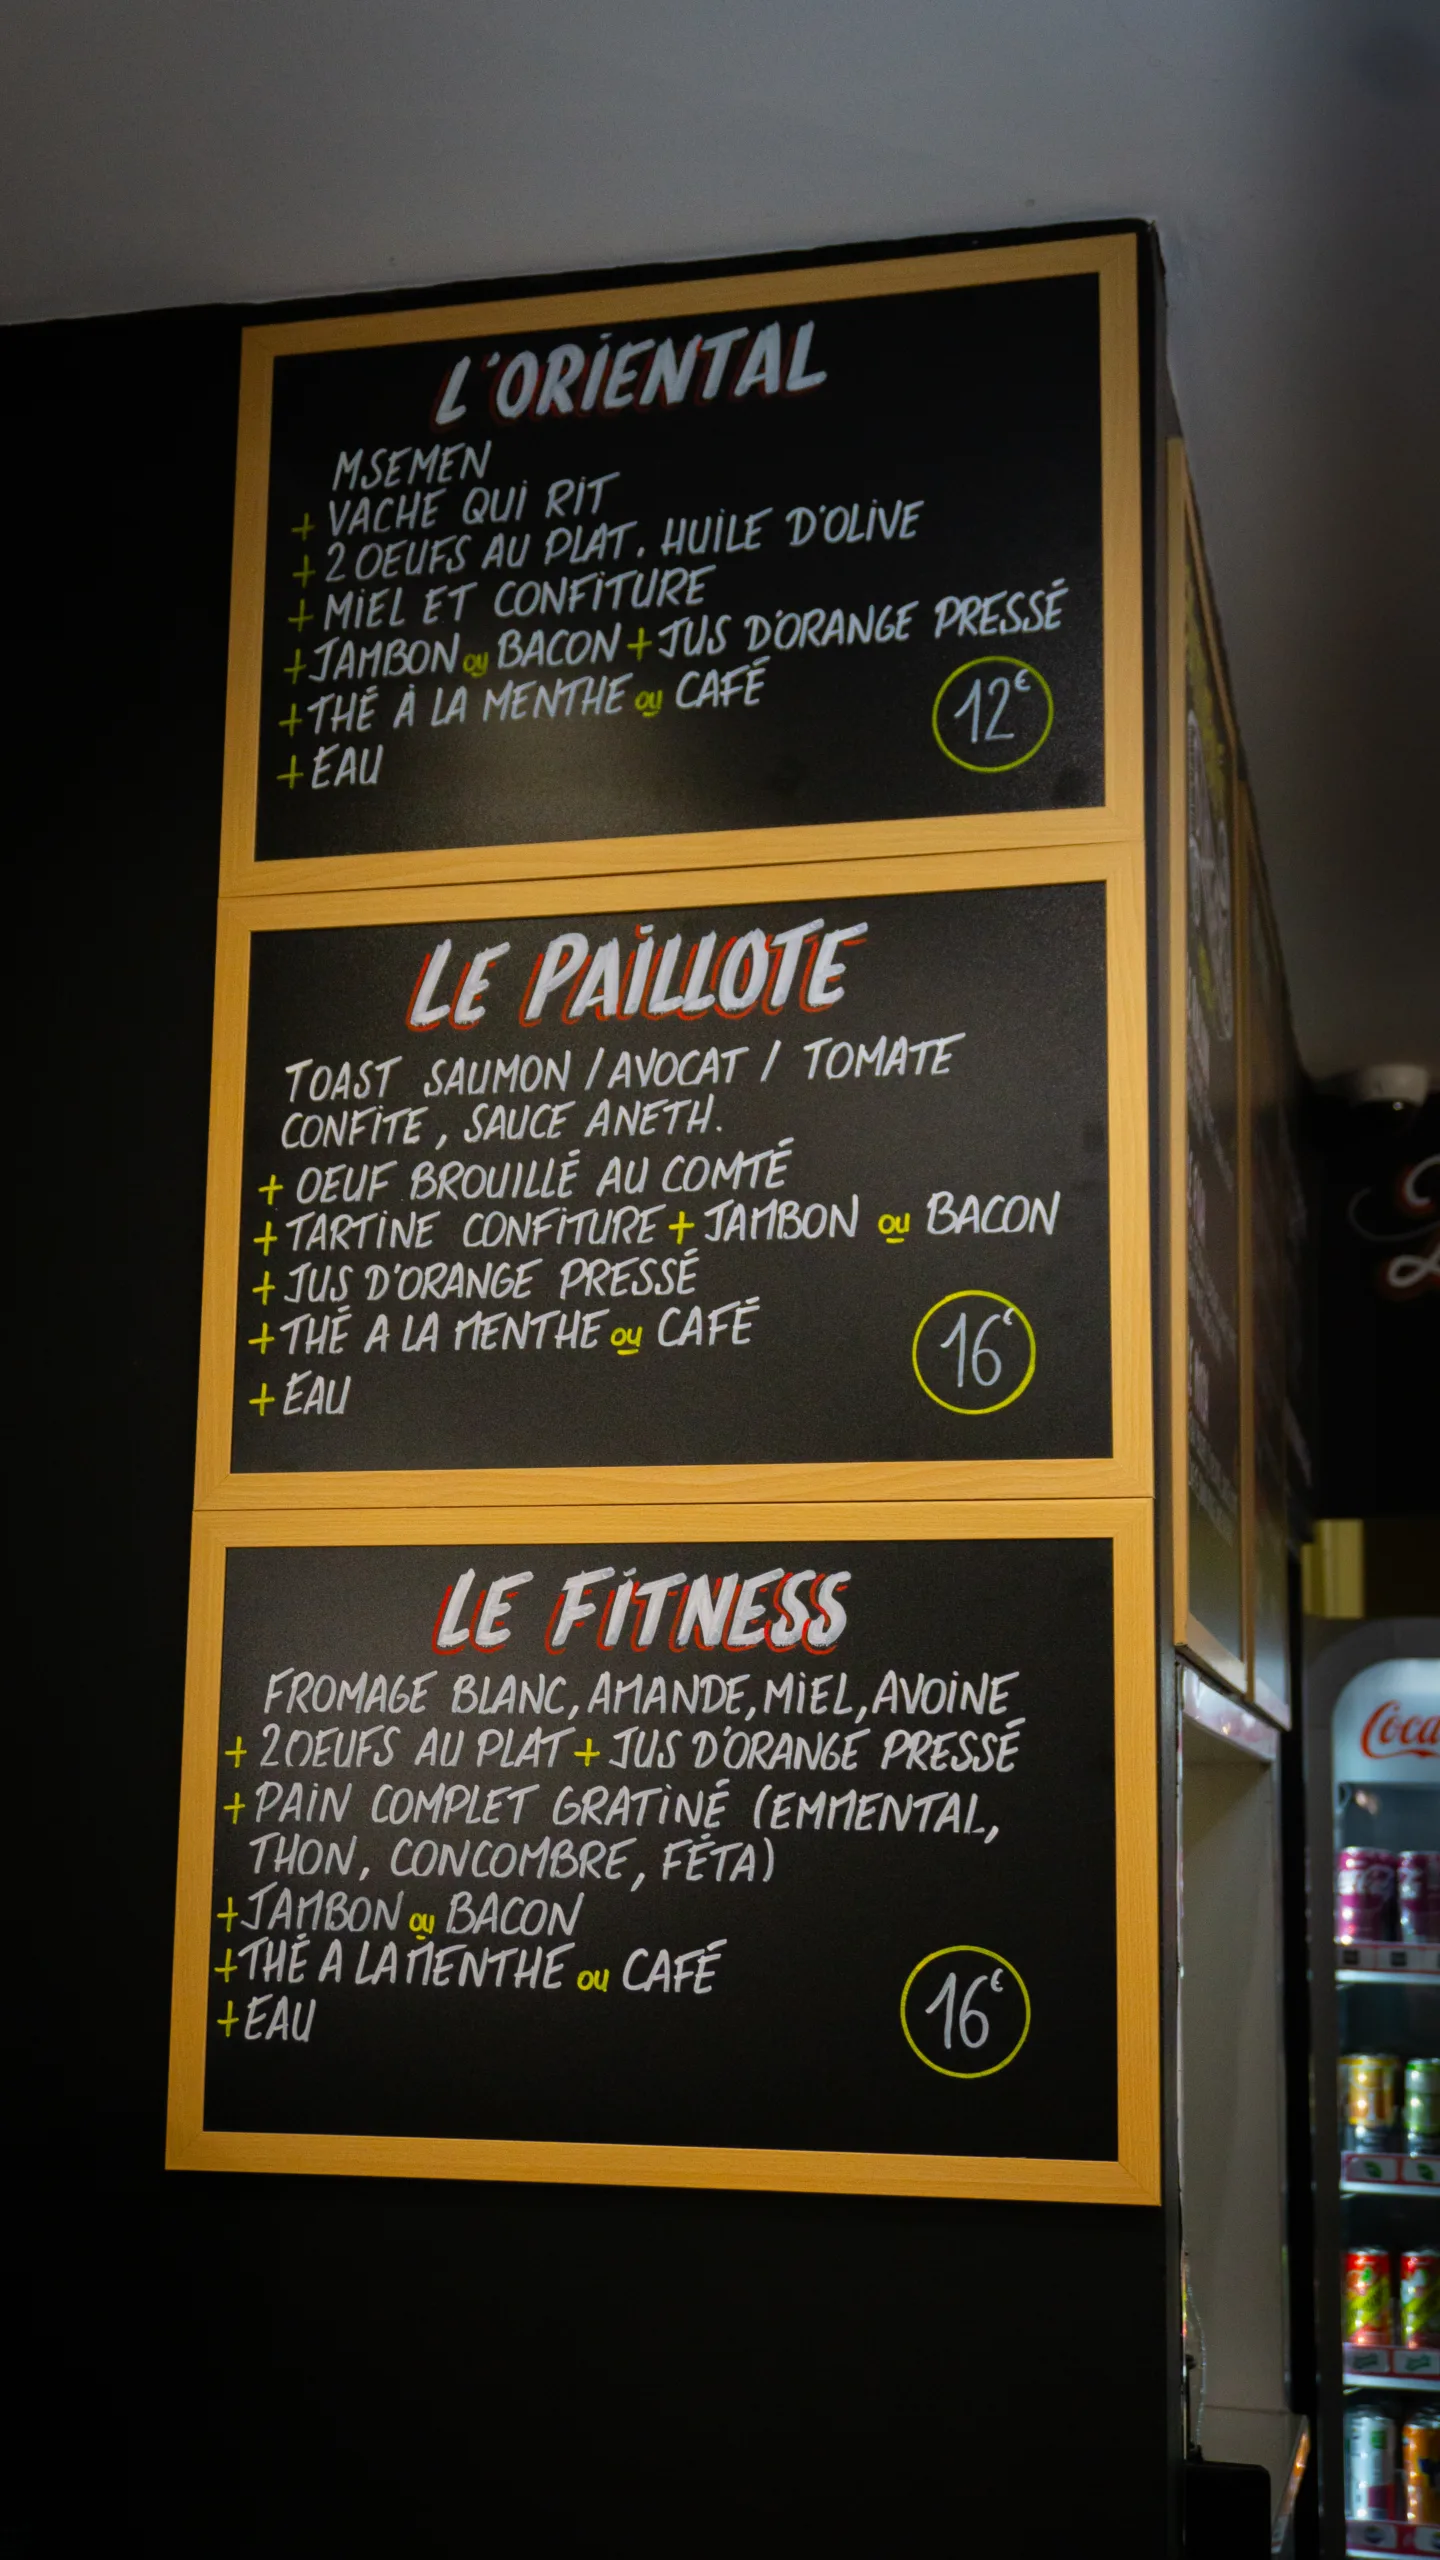 L'ORIENTAL
MSEMEN
+ VACHE QUI RIT
+ 2 OEUFS AU PLAT. HUILE D'OLIVE
+ MIEL ET CONFITURE
+ JAMBON ou BACON + JUS D'ORANGE PRESSÉ
+ THÉ À LA MENTHE ou CAFÉ
+ EAU
12€
LE PAILLOTE
TOAST SAUMON / AVOCAT / TOMATE
CONFITE, SAUCE ANETH.
+ OEUF BROUILLÉ AU COMTÉ
+ TARTINE CONFITURE + JAMBON ou BACON
+ JUS D'ORANGE PRESSÉ
+ THÉ A LA MENTHE ou CAFÉ
+ EAU
16€
LE FITNESS
FROMAGE BLANC, AMANDE, MIEL, AVOINE
+ 2 OEUFS AU PLAT + JUS D'ORANGE PRESSÉ
+ PAIN COMPLET GRATINÉ (EMMENTAL,
THON, CONCOMBRE, FÉTA)
+ JAMBON ou BACON
+ THÉ A LA MENTHE ou CAFÉ
+ EAU
16€